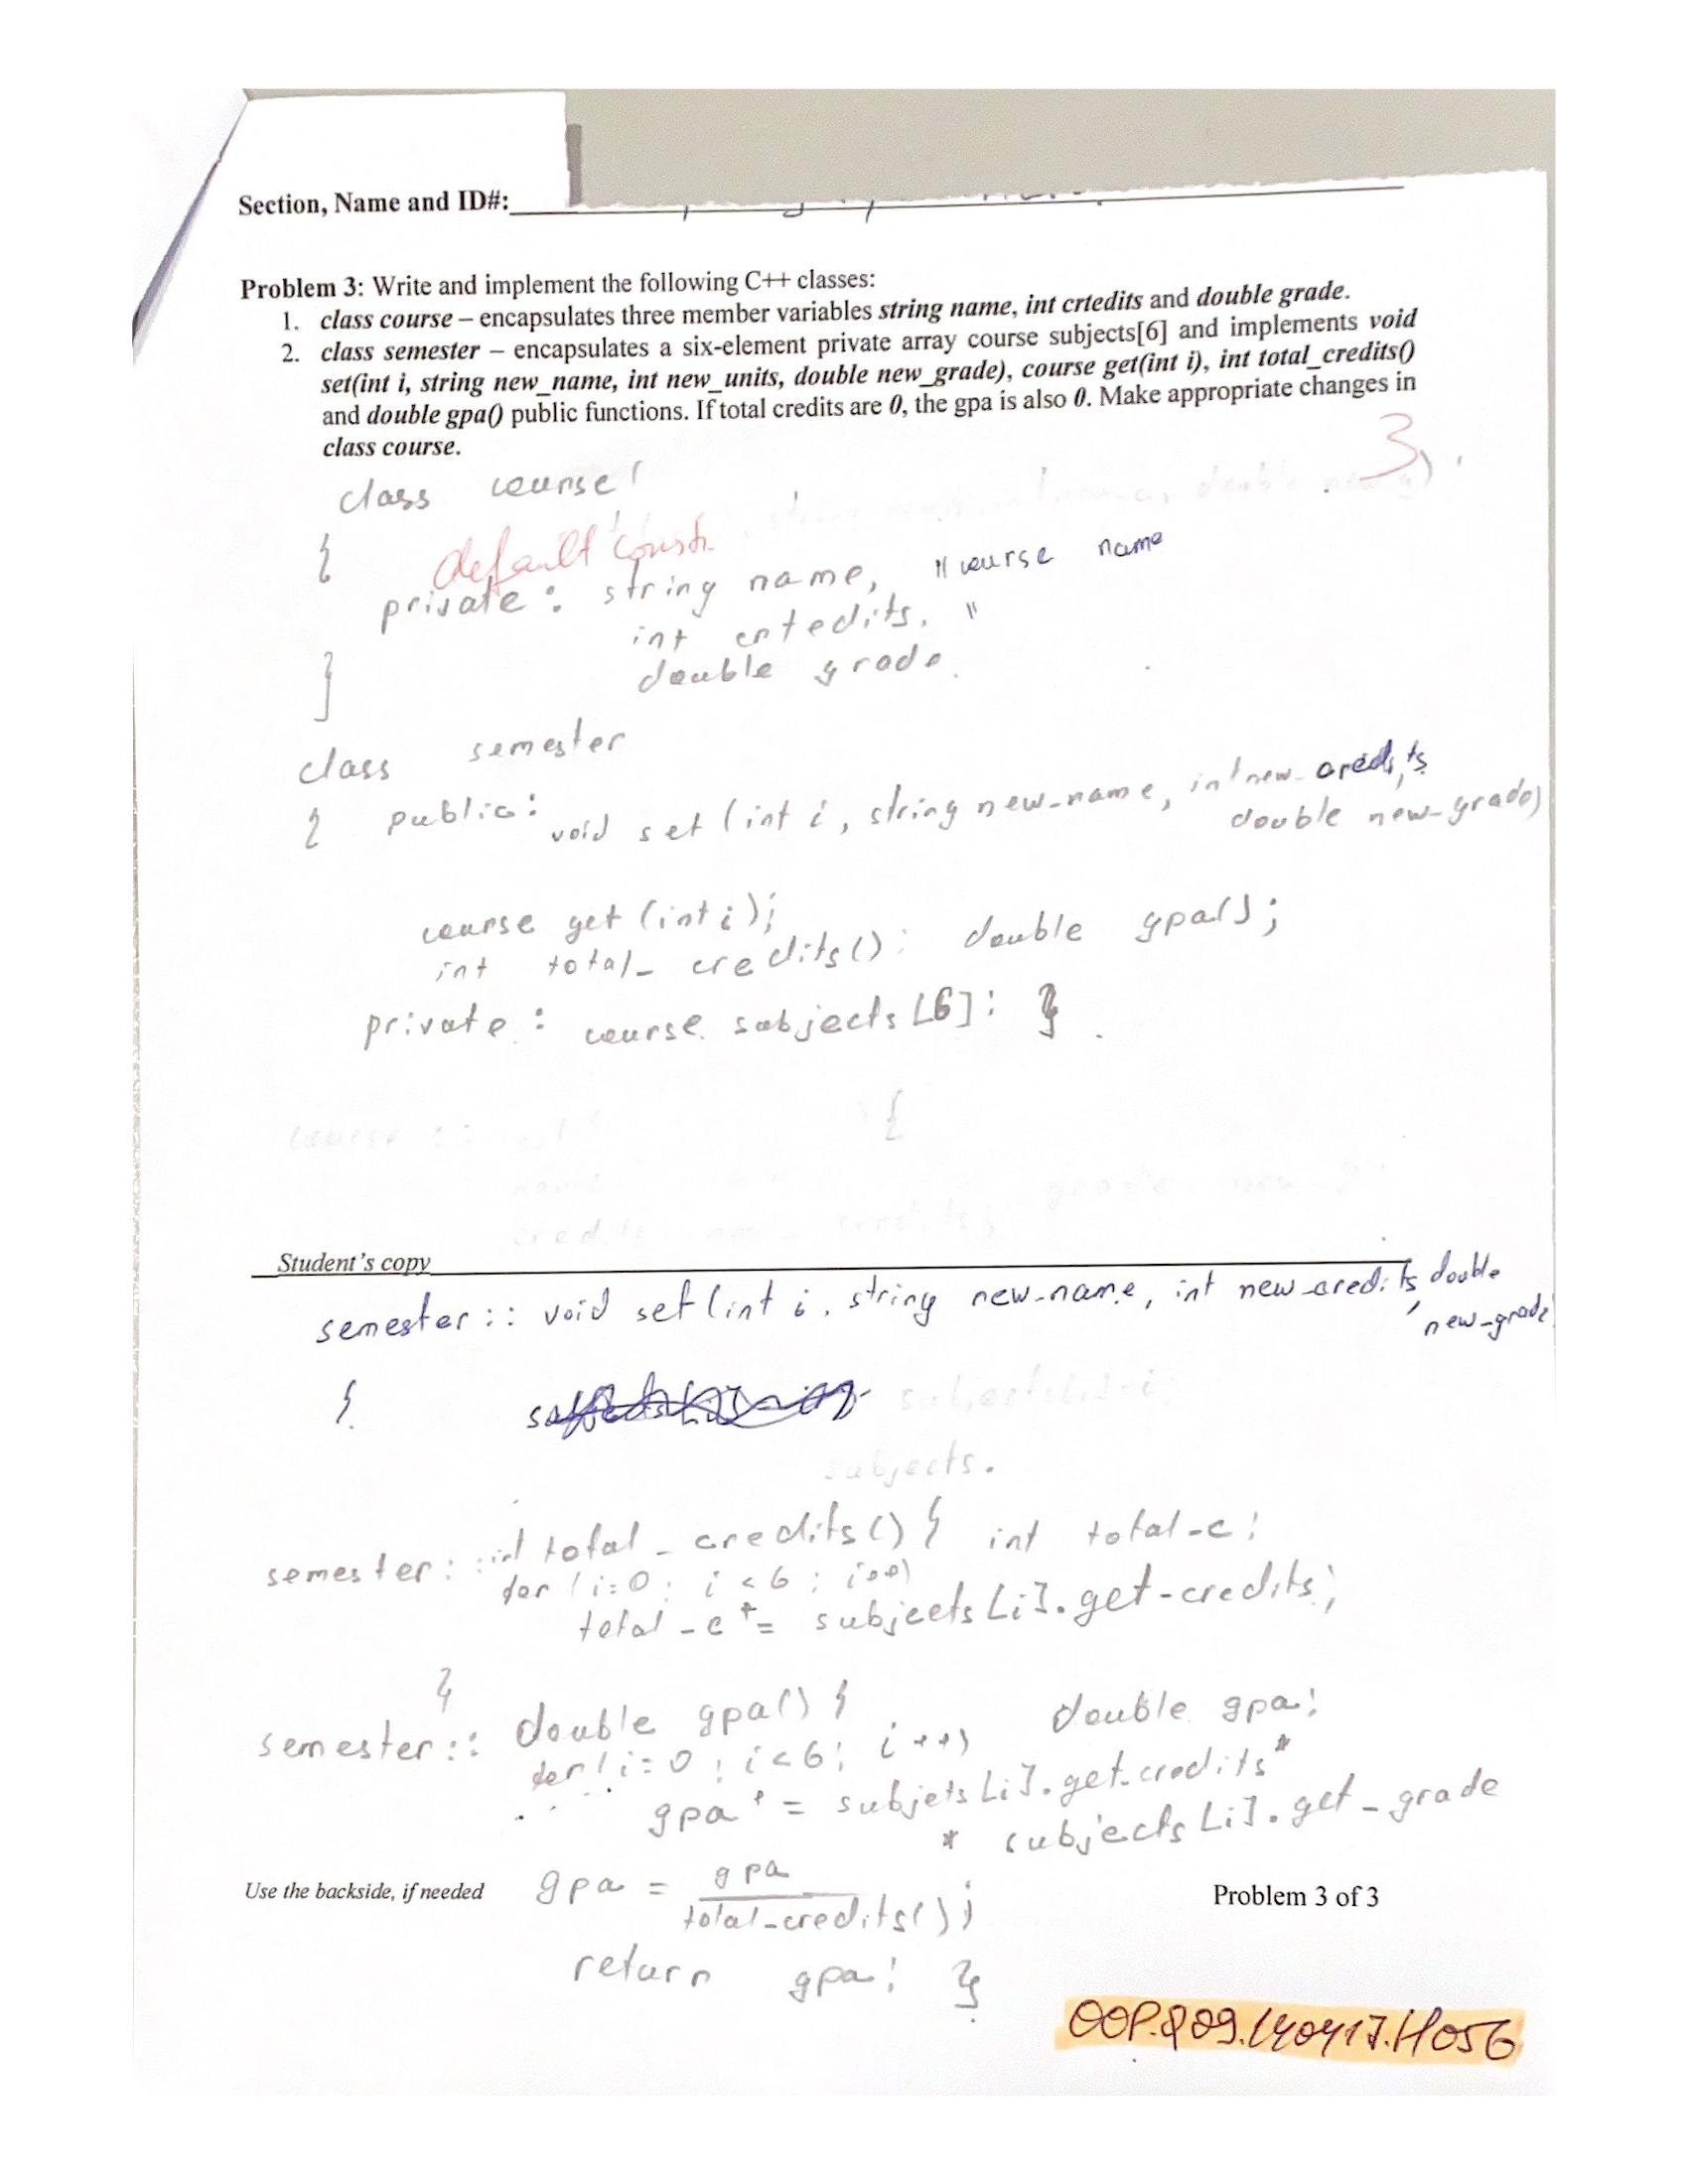 Section, Name and ID#:
Problem 3: Write and implement the following C++ classes:
1. class course – encapsulates three member variables string name, int crtedits and double grade.
2. class semester – encapsulates a six-element private array course subjects[6] and implements void
set(int i, string new_name, int new_units, double new_grade), course get(int i), int total_credits()
and double gpa() public functions. If total credits are 0, the gpa is also 0. Make appropriate changes in
class course.
3
class course
{
default constr.
private: string name, // course name
int crtedits, "
double grade.
}
class semester
{ public: void set (int i, string new-name, int new-credits,
double new-grade)
course get (int i);
int total_credits(); double gpa();
private: course subjects [6]; }
{
Student's copy
semester :: void set (int i, string new-name, int new-credits, double
new-grade
{
subjects.
semester :: int total_credits() { int total-c;
for (i=0; i<6; i++)
total-c += subjects [i].get-credits;
}
semester :: double gpa() { double gpa;
for (i=0; i<6; i++)
gpa += subjets [i].get-credits *
* subjects [i].get-grade
Use the backside, if needed
gpa = gpa
total-credits();
Problem 3 of 3
return gpa; }